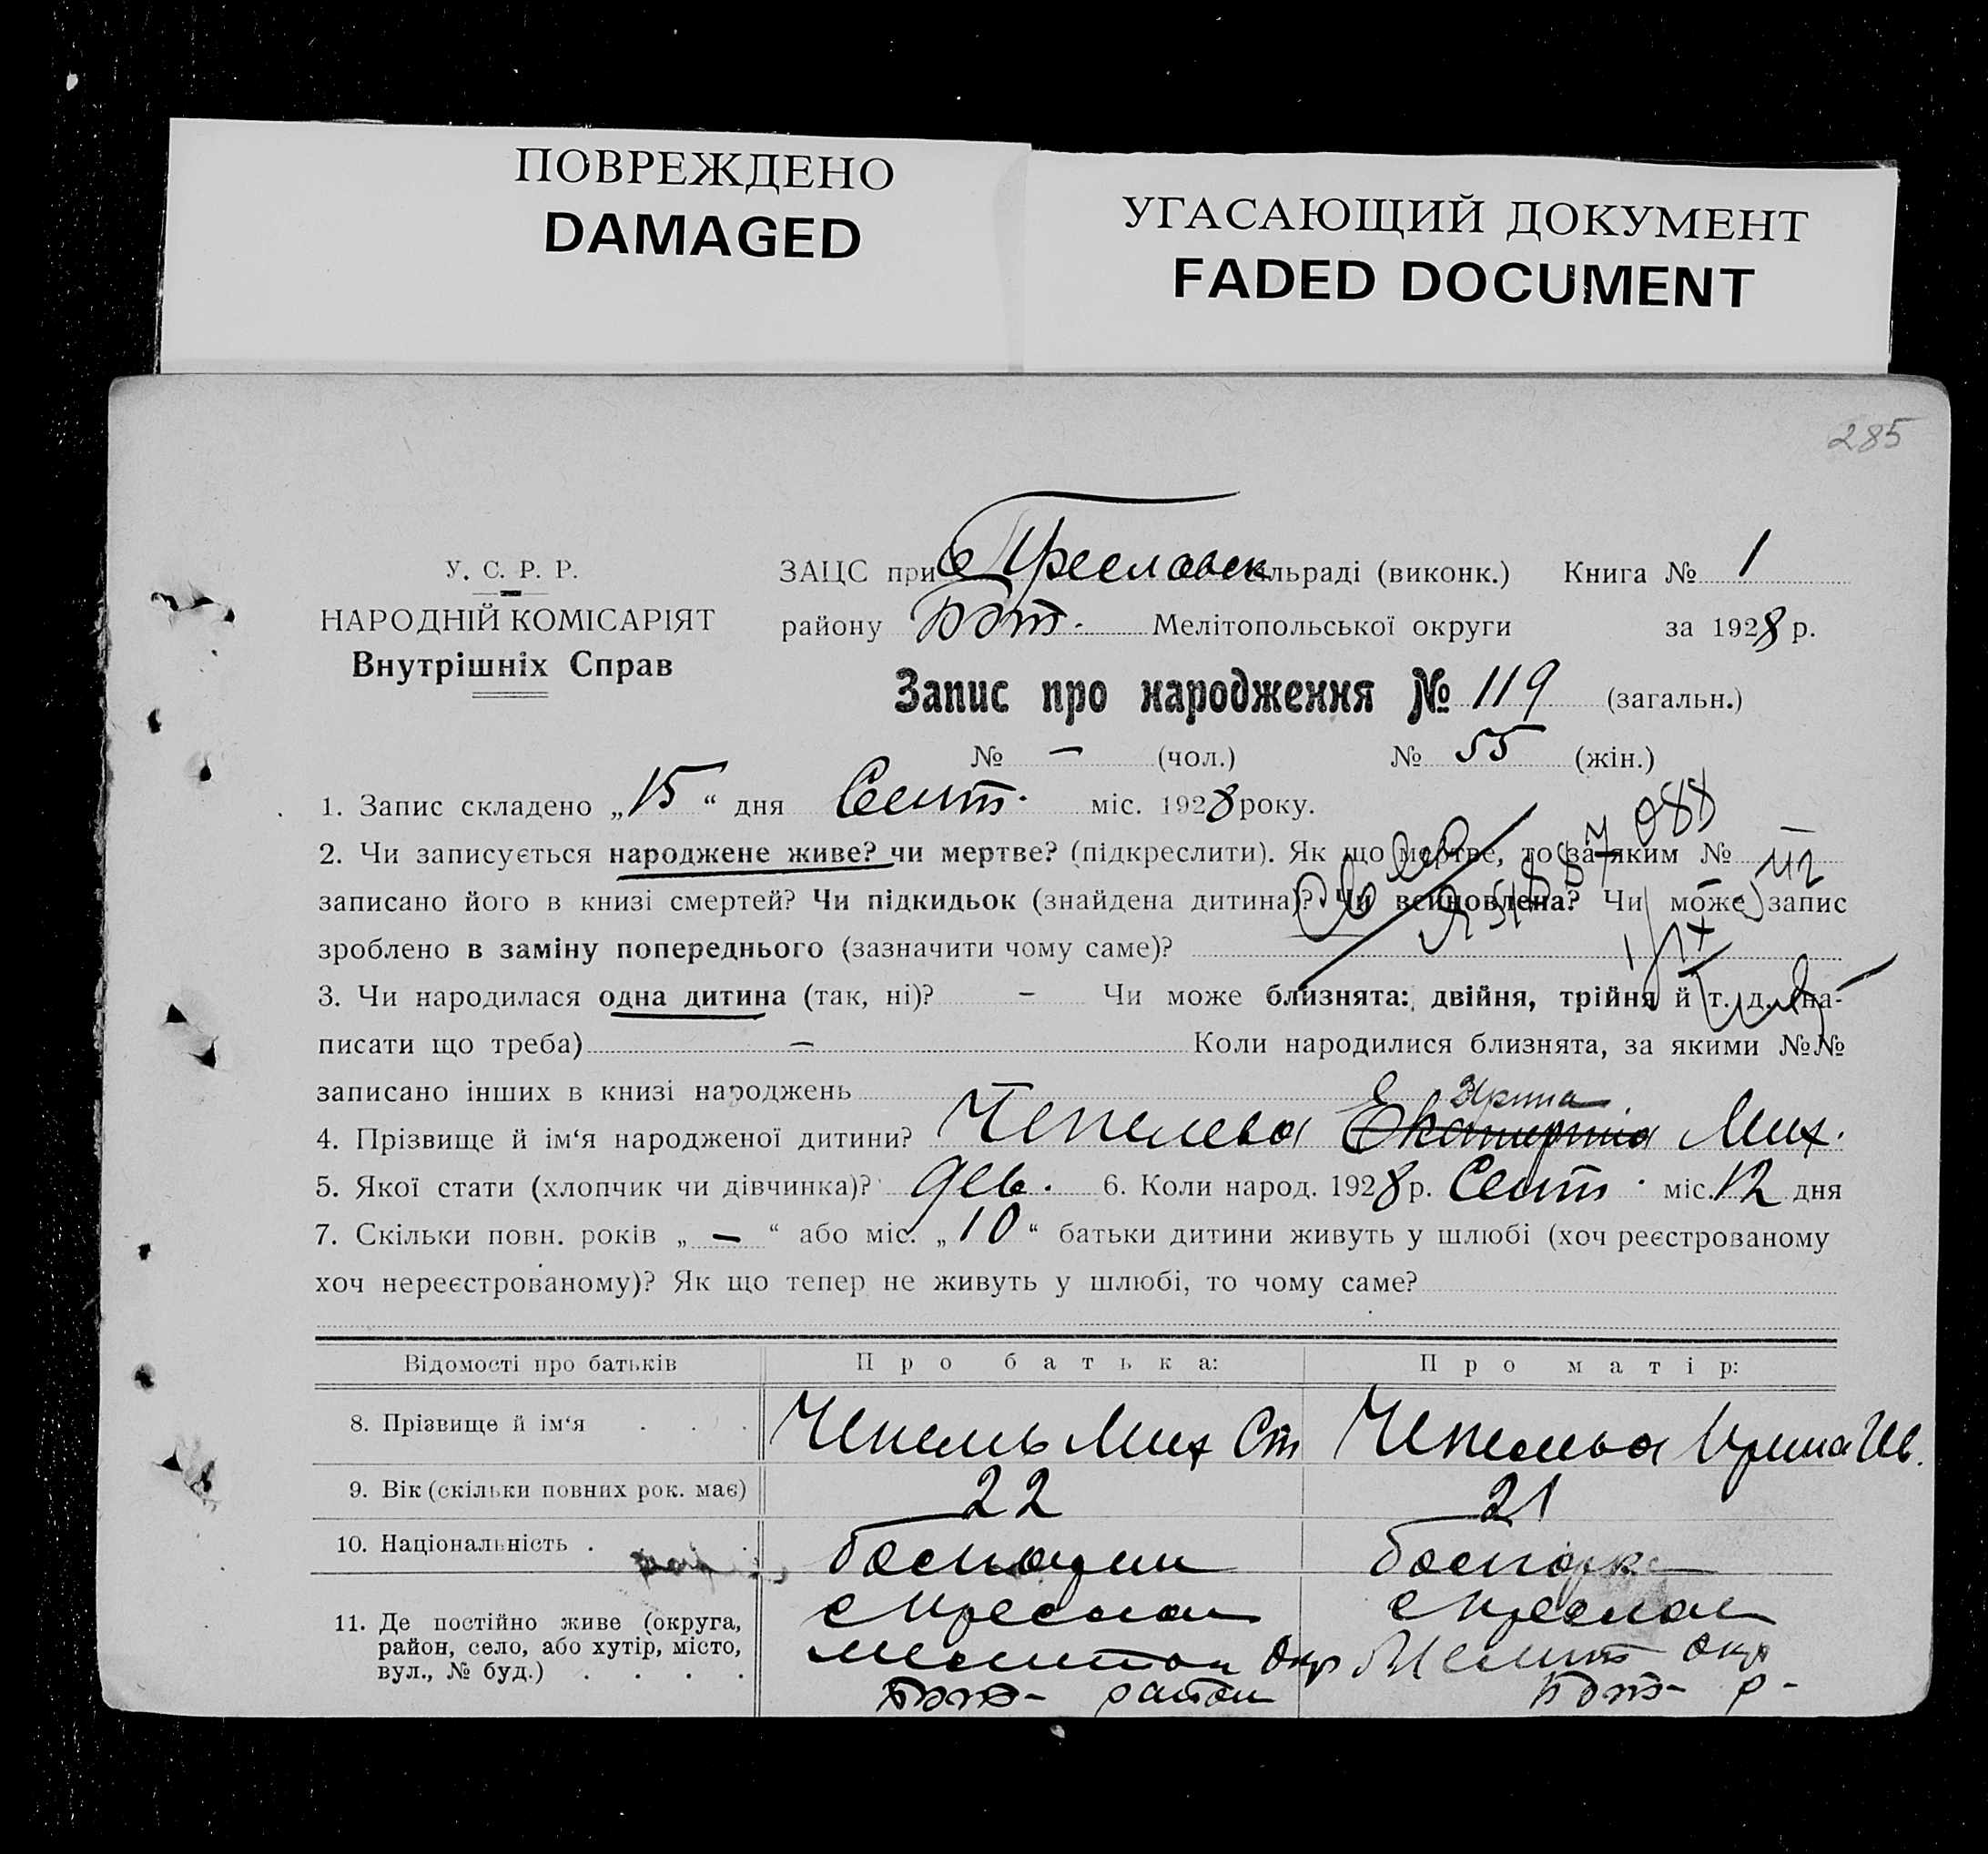 ПОВРЕЖДЕНО
DAMAGED
УГАСАЮЩИЙ ДОКУМЕНТ
FADED DOCUMENT
285
У. С. Р. Р.
НАРОДНІЙ КОМІСАРІЯТ
Внутрішніх Справ
ЗАЦС при Преславск сільраді (виконк.) Книга № 1
району Бот. Мелітопольської округи за 1928 р.
Запис про народження № 119 (загальн.)
№ — (чол.) № 55 (жін.)
1. Запис складено „15“ дня Сент. міс. 1928 року.
2. Чи записується народжене живе? чи мертве? (підкреслити). Як що мертве, то за яким № —
записано його в книзі смертей? Чи підкидьок (знайдена дитина)? Чи всиновлена? Чи може запис
зроблено в заміну попереднього (зазначити чому саме)?
3. Чи народилася одна дитина (так, ні)? — Чи може близнята: двійня, трійня й т. д. (на-
писати що треба) — Коли народилися близнята, за якими №№
записано інших в книзі народжень
Ирина
4. Прізвище й ім‘я народженої дитини? Чепелева Екатерина Мих.
5. Якої стати (хлопчик чи дівчинка)? дев. 6. Коли народ. 1928 р. Сент. міс. 12 дня
7. Скільки повн. років „—“ або міс. „10“ батьки дитини живуть у шлюбі (хоч реєстрованому
хоч нереєстрованому)? Як що тепер не живуть у шлюбі, то чому саме?
Відомості про батьків Про батька: Про матір:
8. Прізвище й ім‘я . . . Чепель Мих Ст Чепелева Ирина Ив.
9. Вік (скільки повних рок. має) 22 21
10. Національність . . болгарин болгарка
11. Де постійно живе (округа, с Преслав с Преслав
район, село, або хутір, місто, Мелитоп Окр Мелит Окр
вул., № буд.) . . . . Бот- район Бот- р-